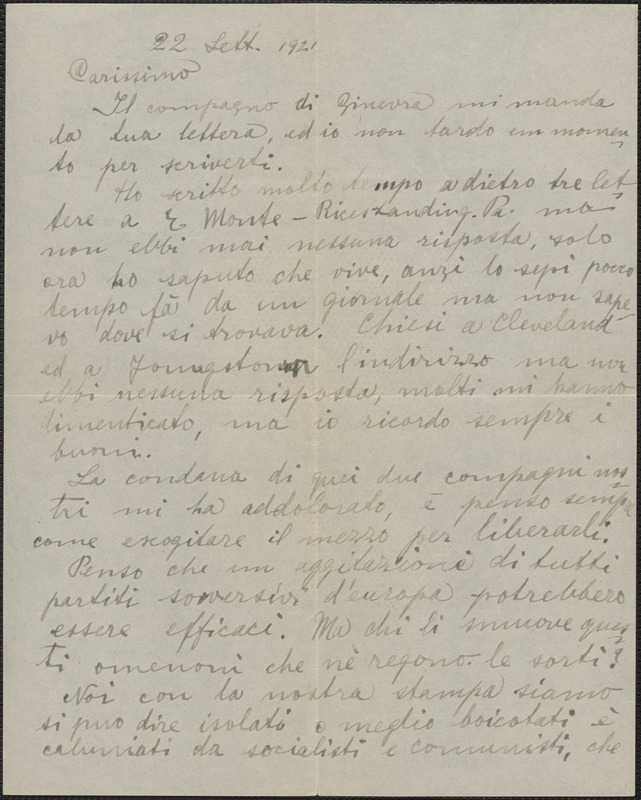 22 Sett. 1921
Carissimo
Il compagno di Ginevra mi manda
la tua lettera, ed io non tardo un momen-
to per scriverti.
Ho scritto molto tempo adietro tre let-
tere a Monte - Rices Landing. Pa. ma
non ebbi mai nessuna risposta, solo
ora ho saputo che vive, anzi lo sepi poco
tempo fà da un giornale ma non sape-
vo dove si trovava. Chiesi a Cleveland
ed a Joungstown l'indirizzo ma non
ebbi nessuna risposta, molti mi hanno
dimenticato, ma io ricordo sempre i
buoni.
La condana di quei due compagni nos-
tri mi ha addolorato, è penso sempre
come escogitare il mezzo per liberarli.
Penso che un aggitazione di tutti
partiti sovversivi d'europa potrebbero
essere efficaci. Ma chi li smuove ques-
ti omenoni che nè regono le sorti?
Noi con la nostra stampa siamo
si puo dire isolati o meglio boicotati è
caluniati da socialisti e comunisti, che